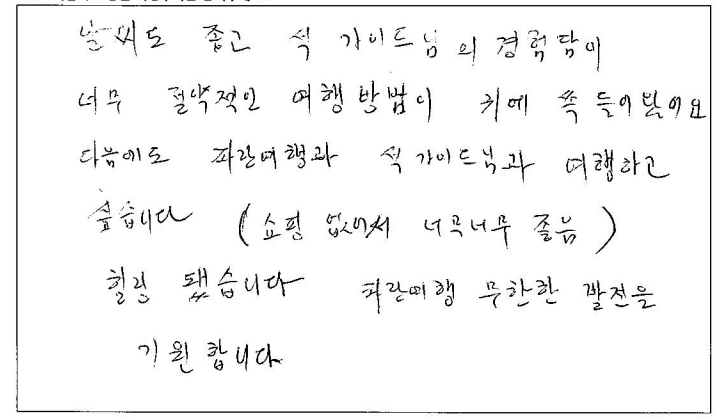 날씨도 좋고 석 가이드님의 경험담이
너무 절약적인 여행방법이 귀에 쏙 들어왔어요
다음에도 파란여행과 석 가이드님과 여행하고
싶습니다 (쇼핑 없어서 너무너무 좋음)
힐링 됐습니다 파란여행 무한한 발전을
기원합니다